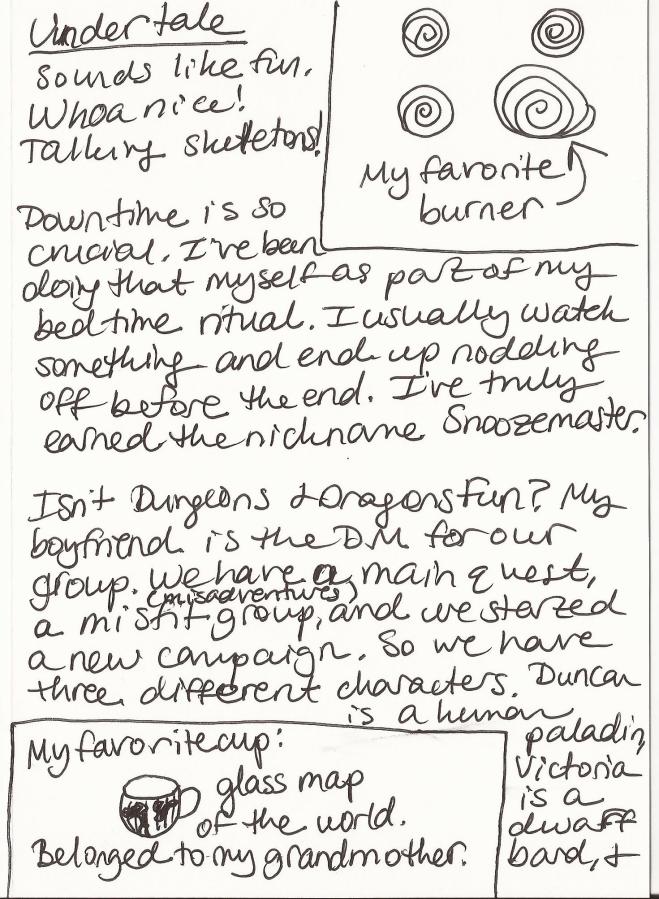 Undertale
Sounds like fun.
Whoa nice!
Talking skeletons!
My favorite
burner
Downtime is so
crucial. I've been
doing that myself as part of my
bedtime ritual. I usually watch
something and end up nodding
off before the end. I've truly
earned the nickname Snoozemaster.
Isn't Dungeons & Dragons fun? My
boyfriend is the DM for our
group. We have a main quest,
(misadventures)
a misfit group, and we started
a new campaign. So we have
three different characters. Duncan
is a human
paladin,
Victoria
is a
dwarf
bard, &
My favorite cup:
glass map
of the world.
Belonged to my grandmother.